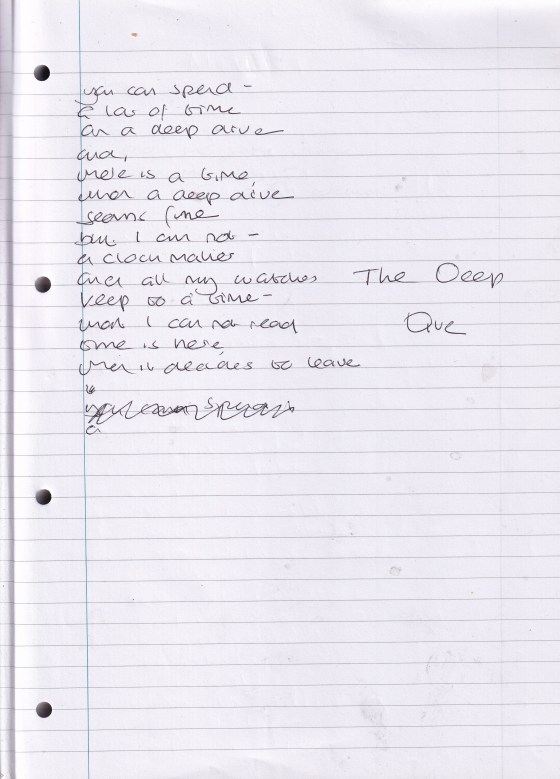 you can spend -
a lot of time
on a deep dive
and,
there is a time
when a deep dive
seems fine
but I am not -
a clock maker
and all my watches
keep to a time -
that I can not read
time is here
when it decides to leave
a
The Deep
Dive